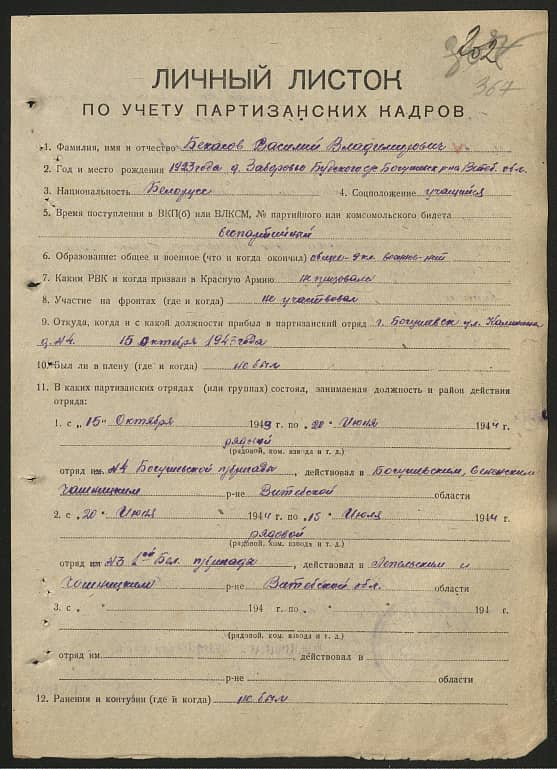 202
367
ЛИЧНЫЙ ЛИСТОК
ПО УЧЕТУ ПАРТИЗАНСКИХ КАДРОВ
1. Фамилия, имя и отчество Бекасов Василий Владимирович
2. Год и место рождения 1923 года д. Заверовье с/с Богушевск р-на Витеб. обл.
3. Национальность Белорусс 4. Соцположение учащийся
5. Время поступления в ВКП(б) или ВЛКСМ, № партийного или комсомольского билета
беспартийный
6. Образование: общее и военное (что и когда окончил) общее-7 кл. военн-нет
7. Каким РВК и когда призван в Красную Армию не призывался
8. Участие на фронтах (где и когда) не участвовал
9. Откуда, когда и с какой должности прибыл в партизанский отряд г. Богушевск ул. Калинина
д. №4. 15 октября 1943 года
10. Был ли в плену (где и когда) не был
11. В каких партизанских отрядах (или группах) состоял, занимаемая должность и район действия
отряда:
1. с „15" Октября 1943 г. по „20" Июня 1944 г.
рядовой
(рядовой, ком. взвода и т. д.)
отряд им. №4 Богушевской бригады, действовал в Богушевским, Сененским
Чашницким р-не Витебской области
2. с „20" Июня 1944 г. по „15" Июля 1944 г.
рядовой
(рядовой, ком. взвода и т. д.)
отряд им. №3 Бел. бригада, действовал в Лепельским и
Чашницким р-не Витебской обл. области
3. с „ " 194 г. по „ " 194 г.
(рядовой, ком. взвода и т. д.)
отряд им. действовал в
р-не области
12. Ранения и контузии (где и когда) не был